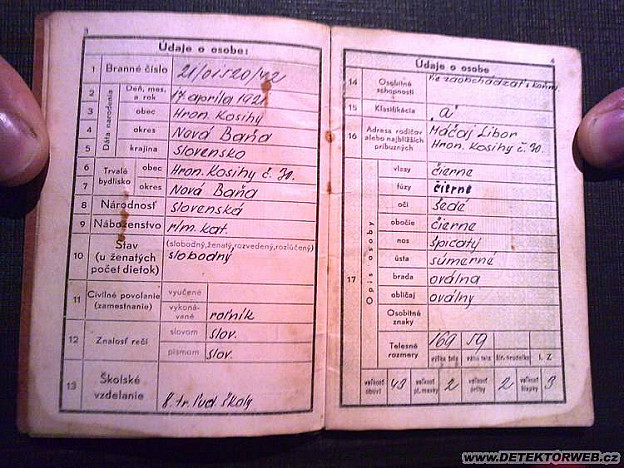 3
Údaje o osobe:
1 Branné číslo 21/01520/42
2 Dáta narodenia Deň, mes. a rok 17. apríla 1921
3 obec Hron. Kosihy
4 okres Nová Baňa
5 krajina Slovensko
6 Trvalé bydlisko obec Hron. Kosihy č. 70.
7 okres Nová Baňa
8 Národnosť slovenská
9 Náboženstvo rím. kat.
10 Stav (u ženatých počet dietok) (slobodný, ženatý, rozvedený, rozlúčený)
slobodný
11 Civilné povolanie (zamestnanie) vyučené
vykonávané roľník
12 Znalosť rečí slovom slov.
písmom slov.
13 Školské vzdelanie 8. tr. ľud školy
4
Údaje o osobe
14 Osobitné schopnosti Vie zaobchádzať s koňmi
15 Klasifikácia "a"
16 Adresa rodičov alebo najbližších príbuzných Máčaj Libor
Hron. Kosihy č. 70.
17 Opis osoby
vlasy čierne
fúzy čierne
oči šedé
obočie čierne
nos špicatý
ústa súmerné
brada oválna
obličaj oválny
Osobitné znaky
Telesné rozmery 169 59
výška tela váha tela šír. hrudníka I. Z
veľkosť obuvi 43 veľkosť pl. masky 2 veľkosť prilby 2 veľkosť čiapky 3
www.DETEKTORWEB.cz